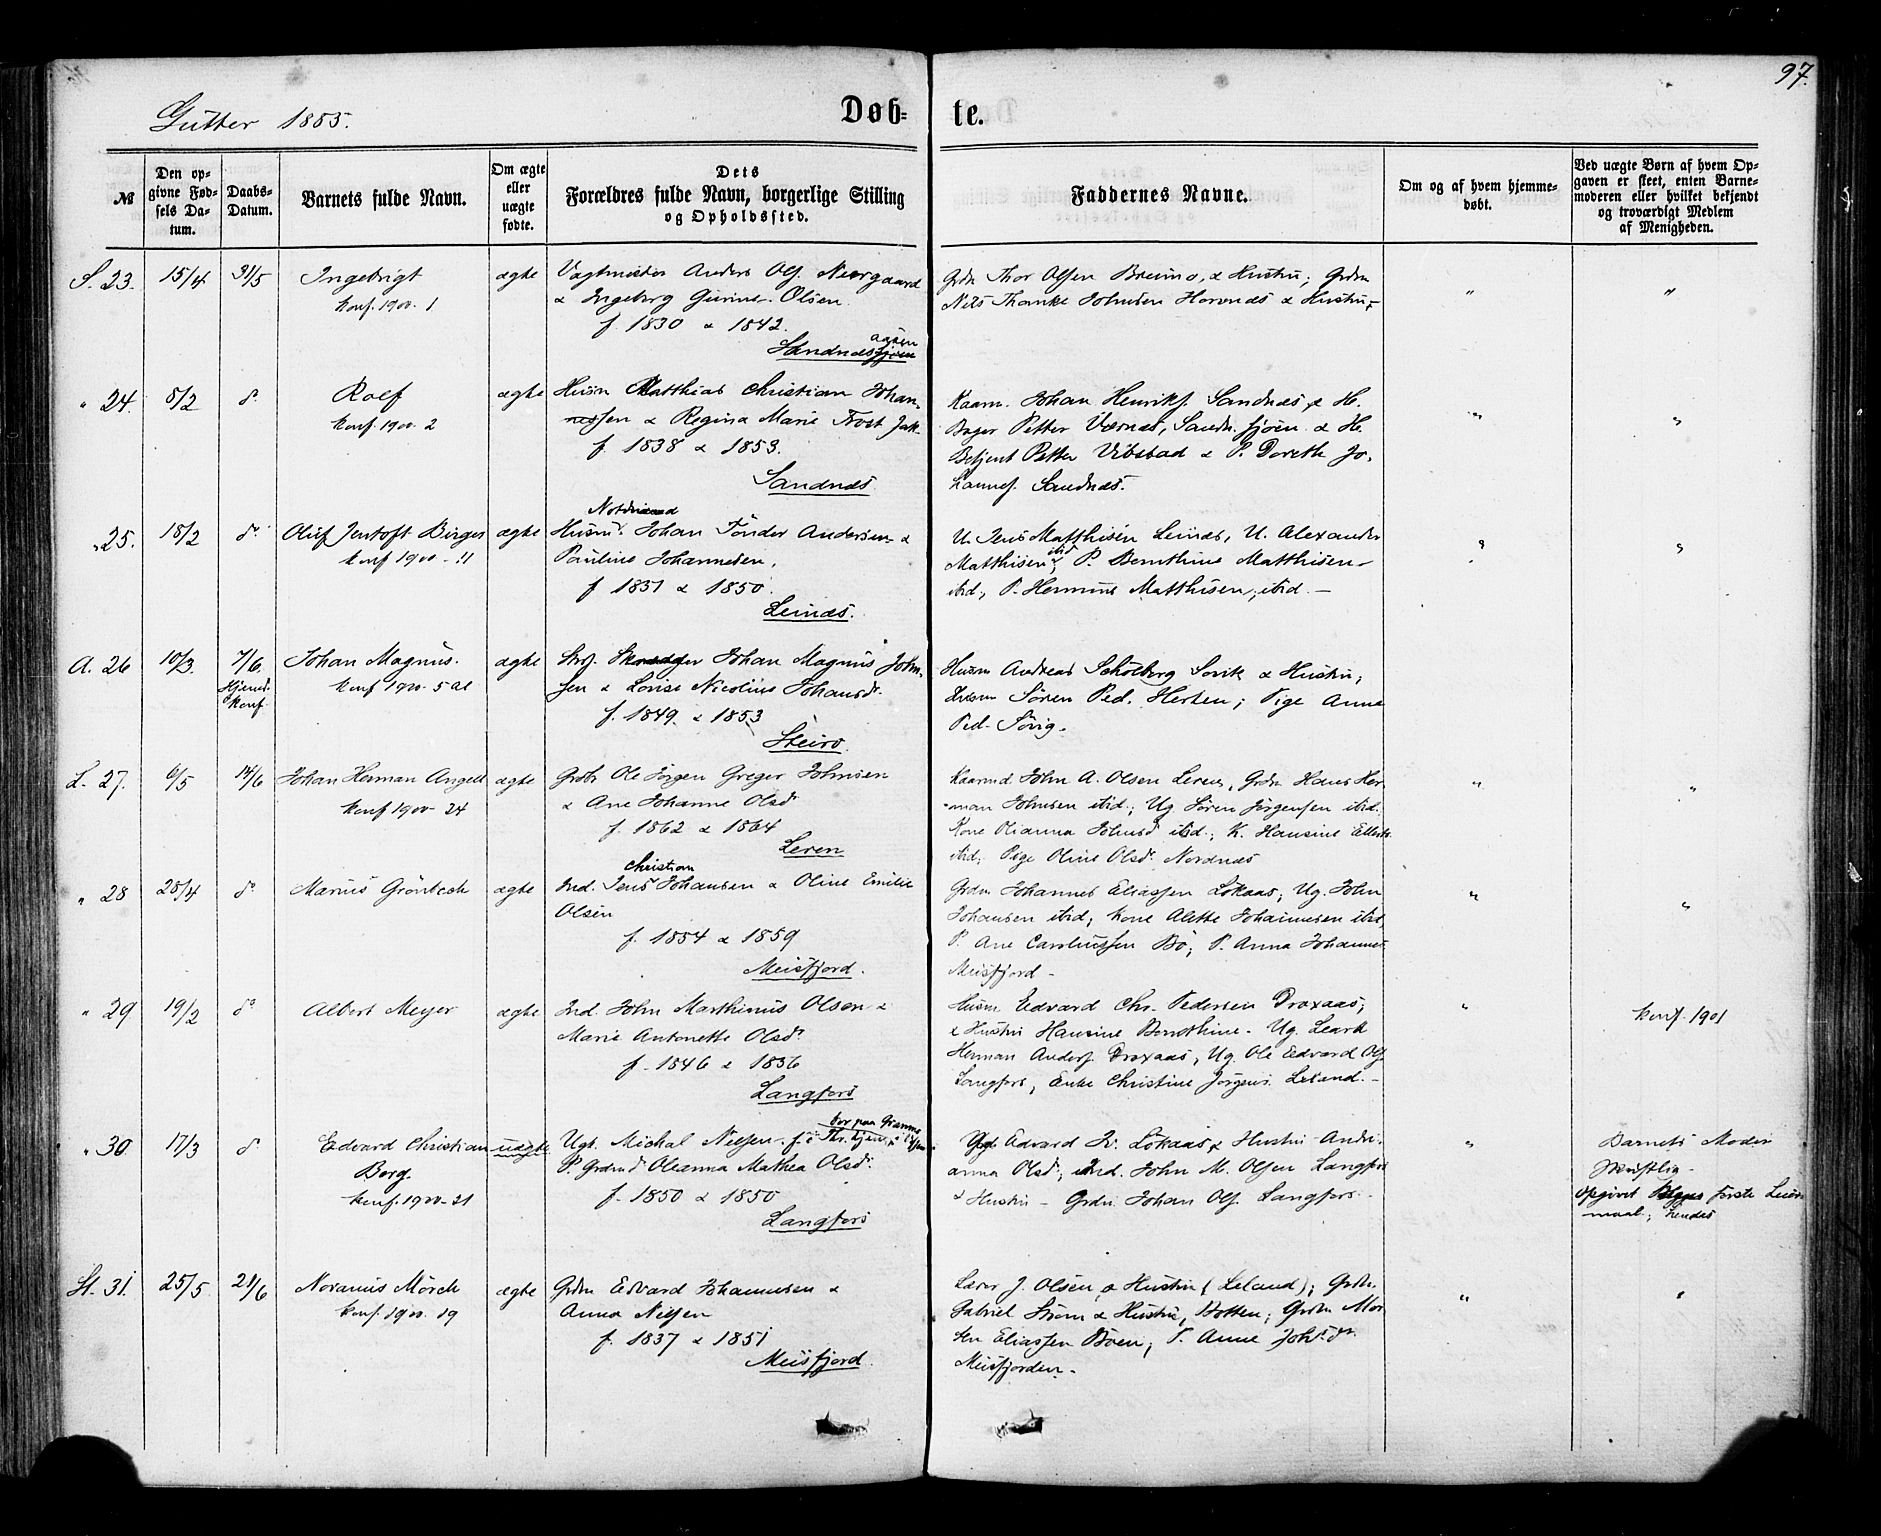 97.
Gutter 1885.
Døb-
te.
№
Den op-
givne Fød-
sels Da-
tum.
Daabs-
Datum.
Barnets fulde Navn.
Om ægte
eller
uægte
fødte.
Dets
Forældres fulde Navn, borgerlige Stilling
og Opholdssted.
Faddernes Navne.
Om og af hvem hjemme-
døbt.
Ved uægte Børn af hvem Op-
gaven er skeet, enten Barne-
moderen eller hvilket bekjendt
og troværdigt Medlem
af Menigheden.
S. 23. 15/4 31/5 Ingebrigt ægte
konf. 1900. 1
Anders Ols. Neergaard
& Ingeborg Olsen.
f. 1830 & 1842.
Sandnes
Grdn Thor Olsen & Hustru; Grdn
Nils Johnsen & Hustru;
" "
" 24. 5/2 do Rolf ægte
konf. 1900. 2
Husm Matthias Christian Johan-
nessen & Regina Marie Trost Jak-
f. 1838 & 1853.
Sandnæs
Kaarm. Johan Henriks. Sandnæs & H.
Petter Sandn. sjøen & H.
Betjent Petter & P. Doreth Jo-
hannes. Sandnæs.
" "
" 25. 18/2 do Oluf Jentoft Birger ægte
konf 1900 - 11
Nordmand
Husm. Johan Tønder Andersen &
Pauline Johannesen,
f 1851 & 1850.
Leinæs.
U. Jens Matthisen Leinæs, U. Alexander
Matthisen ibid; P. Bernthine Matthisen
ibid, P. Hermine Matthisen, ibid. —
" "
A. 26 10/3. 7/6. Johan Magnus. ægte
konf 1900. 5
konf.
Johan Magnus John-
sen & Lovise Nicoline Johansdr.
f. 1849. & 1853
Steiro.
Husm Andreas Sørvik & Hustru;
Søren Ped. Pige Anne
Ped.
L. 27. 6/5 14/6 Johan Herman Angell ægte
konf 1900 - 24
Ole Jørgen Greger Johnsen
& Ane Johanne Olsdr
f. 1862 & 1864
Leren
Kaarmd John A. Olsen Leren, Grdn Hans Her-
man Johnsen ibid; Ug Søren Jørgensen ibid.
Kone Olianna Johnsd ibid; K. Hansine
ibid; Pige Oline Olsdr. Nordnæs
" "
" 28 25/4 do Marius Grönbech ægte
Christian
Ind. Jens Johansen & Oline Emilie
Olsen
f. 1854 & 1859
Meisfjord.
Grdn Johannes Eliassen Lökaas; Ug. John
Johansen ibid; Kone Alette Johannesen ibid,
P. Ane Bö; P. Anna Johannes
Meisfjord -
" "
" 29 19/2 do Albert Meyer ægte
Ind. John Marthinus Olsen &
Marie Antonette Olsdr.
f. 1846 & 1856
Langfors
Husm Edvard Chr. Pedersen
& Hustru Hansine Bernthine. Ug.
Herman Anders. Ug. Ole Edvard Ols.
Langfors, Enke Christine Jørgens. Leland. -
"
konf. 1901
" 30. 17/3 do Edvard Christian uægte
Borg.
konf. 1900 - 21
bor paa
Ugk. Michal Nilsen.
P. Oleanna Mathea Olsdr.
f. 1850 & 1850
Langfors
Edvard Lökaas & Hustru Andri-
anna Olsd; ind. John M. Olsen Langfors
& Hustru - Grdn. Johan Ols. Langfors.
"
Barnets Moder
skriftlig -
opgivet første Leier-
maal; hendes
St. 31. 25/5. 21/6 Noranus Mörch ægte
konf. 1900. 19
Grdn Edvard Johannesen &
Anna Nilsen
f. 1837 & 1851
Meisfjord.
Lærer J. Olsen & Hustru (Leland); Grdn.
Gabriel Strøm & Hustru, Botten; Grdn Mor-
ten Eliassen Böen; P. Anne Johs. dr.
Meisfjorden -
" "